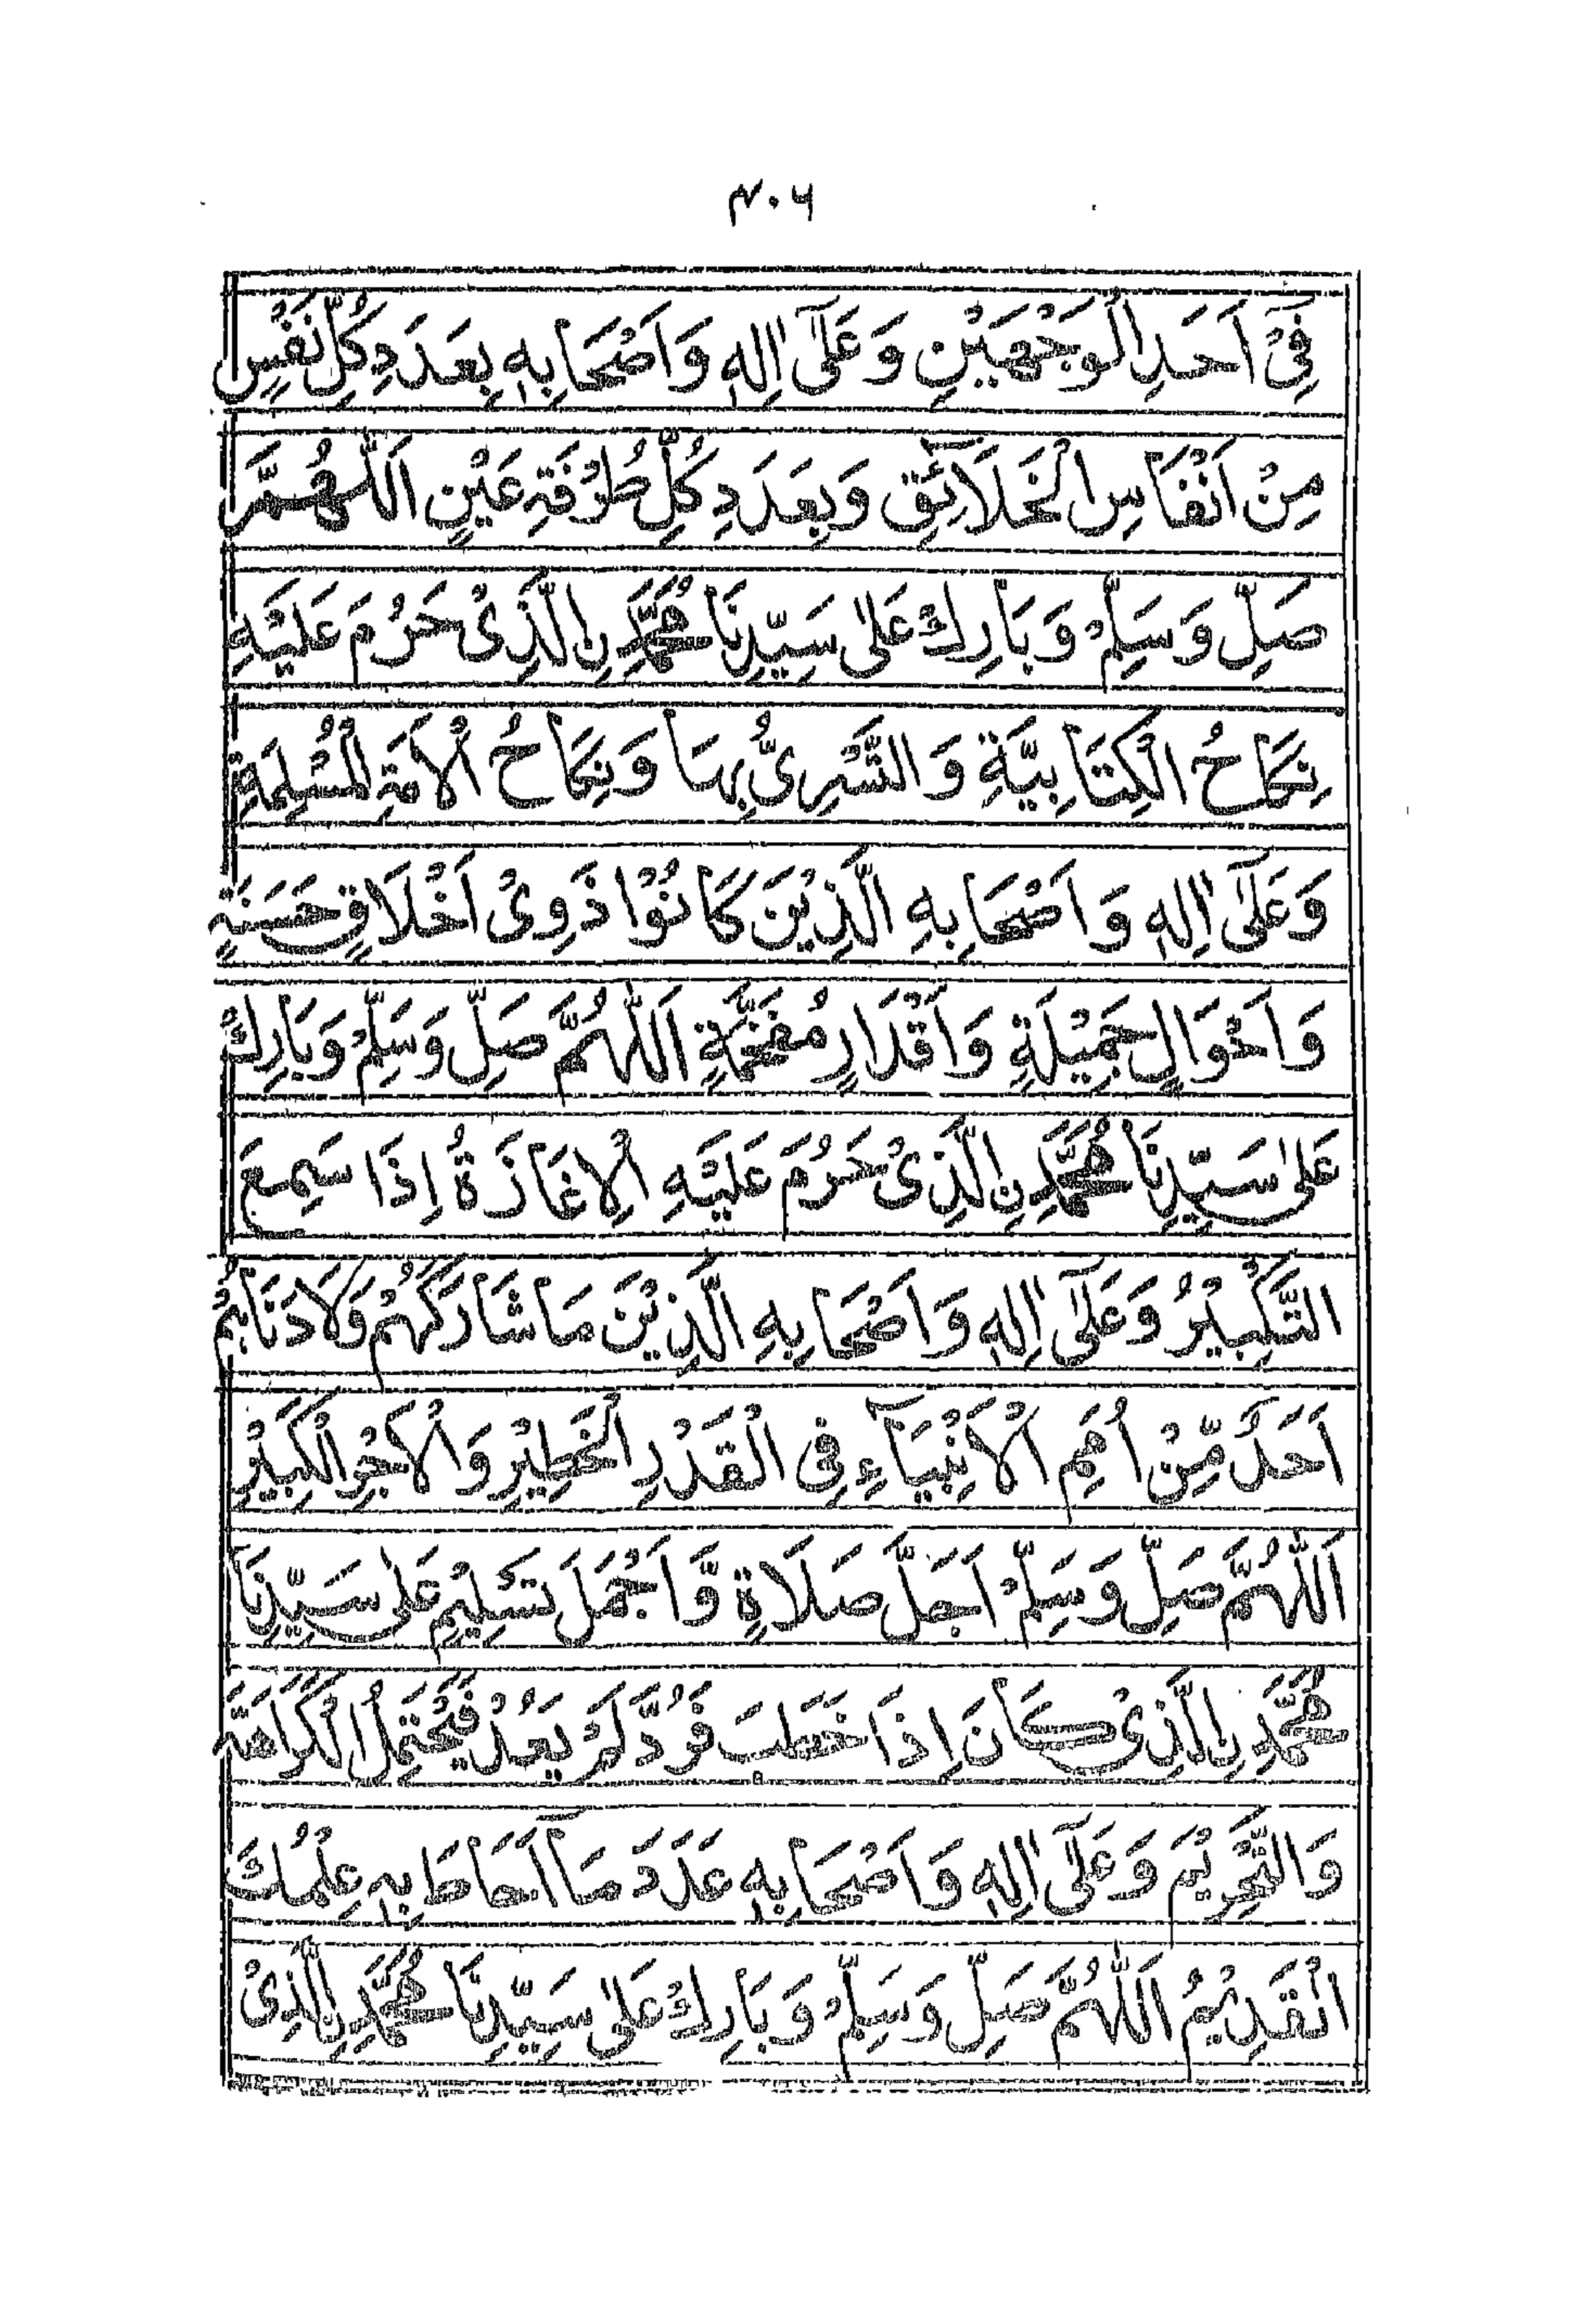 ۴۰۶
فِیْٓ اَحَدِ الْوَجْهَیْنِ وَ عَلٰٓی اٰلِهٖ وَ اَصْحَابِهٖ بِعَدَدِ كُلِّ نَفَسٍ
مِنْ اَنْفَاسِ الْخَلَآئِقِ وَ بِعَدَدِ كُلِّ طُرْفَةِ عَیْنٍ اَللّٰهُمَّ
صَلِّ وَ سَلِّمْ وَ بَارِكْ عَلٰی سَیِّدِنَا مُحَمَّدِ نِ الَّذِیْ حَرُمَ عَلَیْهِ
نِكَاحُ الْكِتَابِیَّةِ وَ التَّسَرِیُّ بِهَا وَ نِكَاحُ الْاَمَةِ الْمُسْلِمَةِ
وَ عَلٰٓی اٰلِهٖ وَ اَصْحَابِهِ الَّذِیْنَ كَانُوْا ذَوِیْ اَخْلَاقٍ حَسَنَةٍ
وَ اَحْوَالٍ جَمِیْلَةٍ وَ اَقْدَارٍ مُفَخَّمَةٍ اَللّٰهُمَّ صَلِّ وَ سَلِّمْ وَ بَارِكْ
عَلٰی سَیِّدِنَا مُحَمَّدِ نِ الَّذِیْ حَرُمَ عَلَیْهِ الْاِغَارَةُ اِذَا سَمِعَ
التَّكْبِیْرُ وَ عَلٰٓی اٰلِهٖ وَ اَصْحَابِهِ الَّذِیْنَ مَا شَارَكَهُمْ وَلَا دَنَاهُمْ
اَحَدٌ مِّنْ اُمَمِ الْاَنْبِیَآءِ فِی الْقَدْرِ الْخَطِیْرِ وَ الْاَجْرِ الْكَبِیْرِ
اَللّٰهُمَّ صَلِّ وَ سَلِّمْ اَجَلَّ صَلَاةٍ وَّ اَجْمَلَ تَسْلِیْمٍ عَلٰی سَیِّدِنَا
مُحَمَّدِ نِ الَّذِیْ كَانَ اِذَا خَطَبَ فَرُدَّ لَمْ یَعُدْ فَیَحْتَمِلُ الْكَرَاهَةَ
وَ التَّحْرِیْمَ وَ عَلٰٓی اٰلِهٖ وَ اَصْحَابِهٖ عَدَدَ مَآ اَحَاطَ بِهٖ عِلْمُكَ
الْقَدِیْمُ اَللّٰهُمَّ صَلِّ وَ سَلِّمْ وَ بَارِكْ عَلٰی سَیِّدِنَا مُحَمَّدِ نِ الَّذِیْ